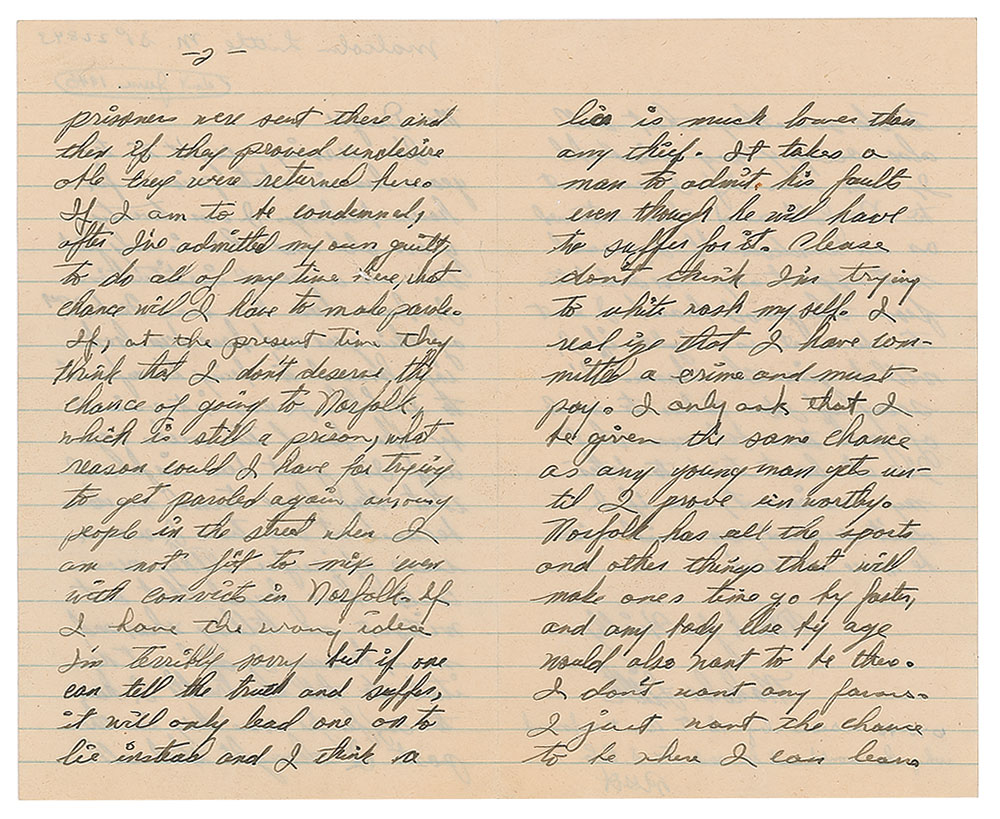 -2-
prisoners were sent there and
then if they proved undesire
able they were returned here.
If I am to be condemned,
after I've admitted my own guilt,
to do all of my time here, what
chance will I have to make parole.
If, at the present time they
think that I don't deserve the
chance of going to Norfolk,
which is still a prison, what
reason could I have for trying
to get paroled again among
people in the street when I
am not fit to mix even
with convicts in Norfolk. If
I have the wrong idea
I'm terribly sorry but if one
can tell the truth and suffer,
it will only lead one on to
lie instead and I think a
liar is much lower than
any thief. It takes a
man to admit his faults
even though he will have
to suffer for it. Please
don't think I'm trying
to white wash my self. I
realize that I have com-
mitted a crime and must
pay. I only ask that I
be given the same chance
as any young man gets un-
til I prove unworthy.
Norfolk has all the sports
and other things that will
make ones time go by faster,
and any body else by age
would also want to be there.
I don't want any favors.
I just want the chance
to be where I can learn